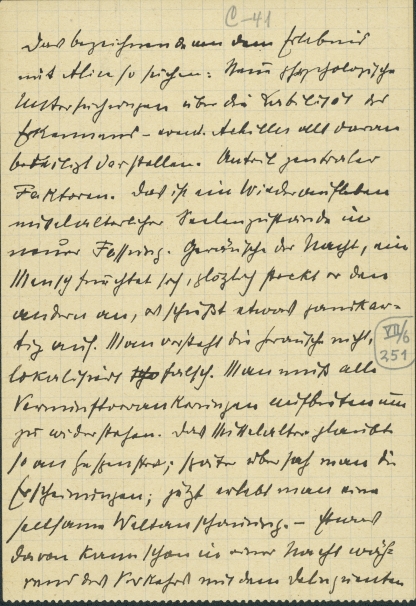 C-41
Das bezeichnende an dem Erlebnis
mit Alice so suchen: Neue psychologische
Untersuchungen über die Labilität des
Erkennens – event. Achilles als daran
beteiligt darstellen. Anteil zentraler
Faktoren. Das ist ein Wiederaufleben
mittelalterlicher Seelenzustände in
neuer Fassung. Geräusche der Nacht, ein
Mensch fürchtet sich, plötzlich steckt er den
andern an, es schießt etwas panikar-
tig auf. Man versteht die Geräusche nicht,
lokalisiert falsch. Man muß alle
Vernunftverankerungen aufbieten um
zu widerstehen. Das Mittelalter glaubte
so an Gespenster; später übersah man die
Erscheinungen; jetzt erlebt man eine
seltsame Weltanschauung. – Etwas
davon kann schon in einer Nacht wäh-
rend des Verkehrs mit dem Delinquenten
VII/6
251